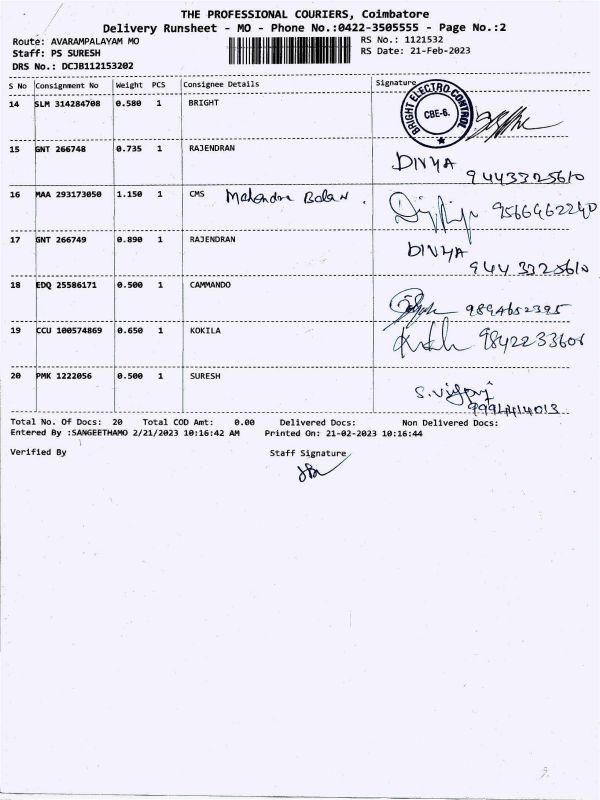 THE PROFESSIONAL COURIERS, Coimbatore
Delivery Runsheet - MO - Phone No.:0422-3505555 - Page No.:2
Route: AVARAMPALAYAM MO RS No.: 1121532
Staff: PS SURESH RS Date: 21-Feb-2023
DRS No.: DCJB112153202
S No Consignment No Weight PCS Consignee Details Signature
14 SLM 314284708 0.580 1 BRIGHT BRIGHT ELECTRO CONTROL CBE-6.
15 GNT 266748 0.735 1 RAJENDRAN DIVYA
9443325610
16 MAA 293173050 1.150 1 CMS 9566462240
17 GNT 266749 0.890 1 RAJENDRAN DIVYA
9443325610
18 EDQ 25586171 0.500 1 CAMMANDO 9894652395
19 CCU 100574869 0.650 1 KOKILA 9842233601
20 PMK 1222056 0.500 1 SURESH
Total No. Of Docs: 20 Total COD Amt: 0.00 Delivered Docs: Non Delivered Docs:
Entered By :SANGEETHAMO 2/21/2023 10:16:42 AM Printed On: 21-02-2023 10:16:44
Verified By Staff Signature